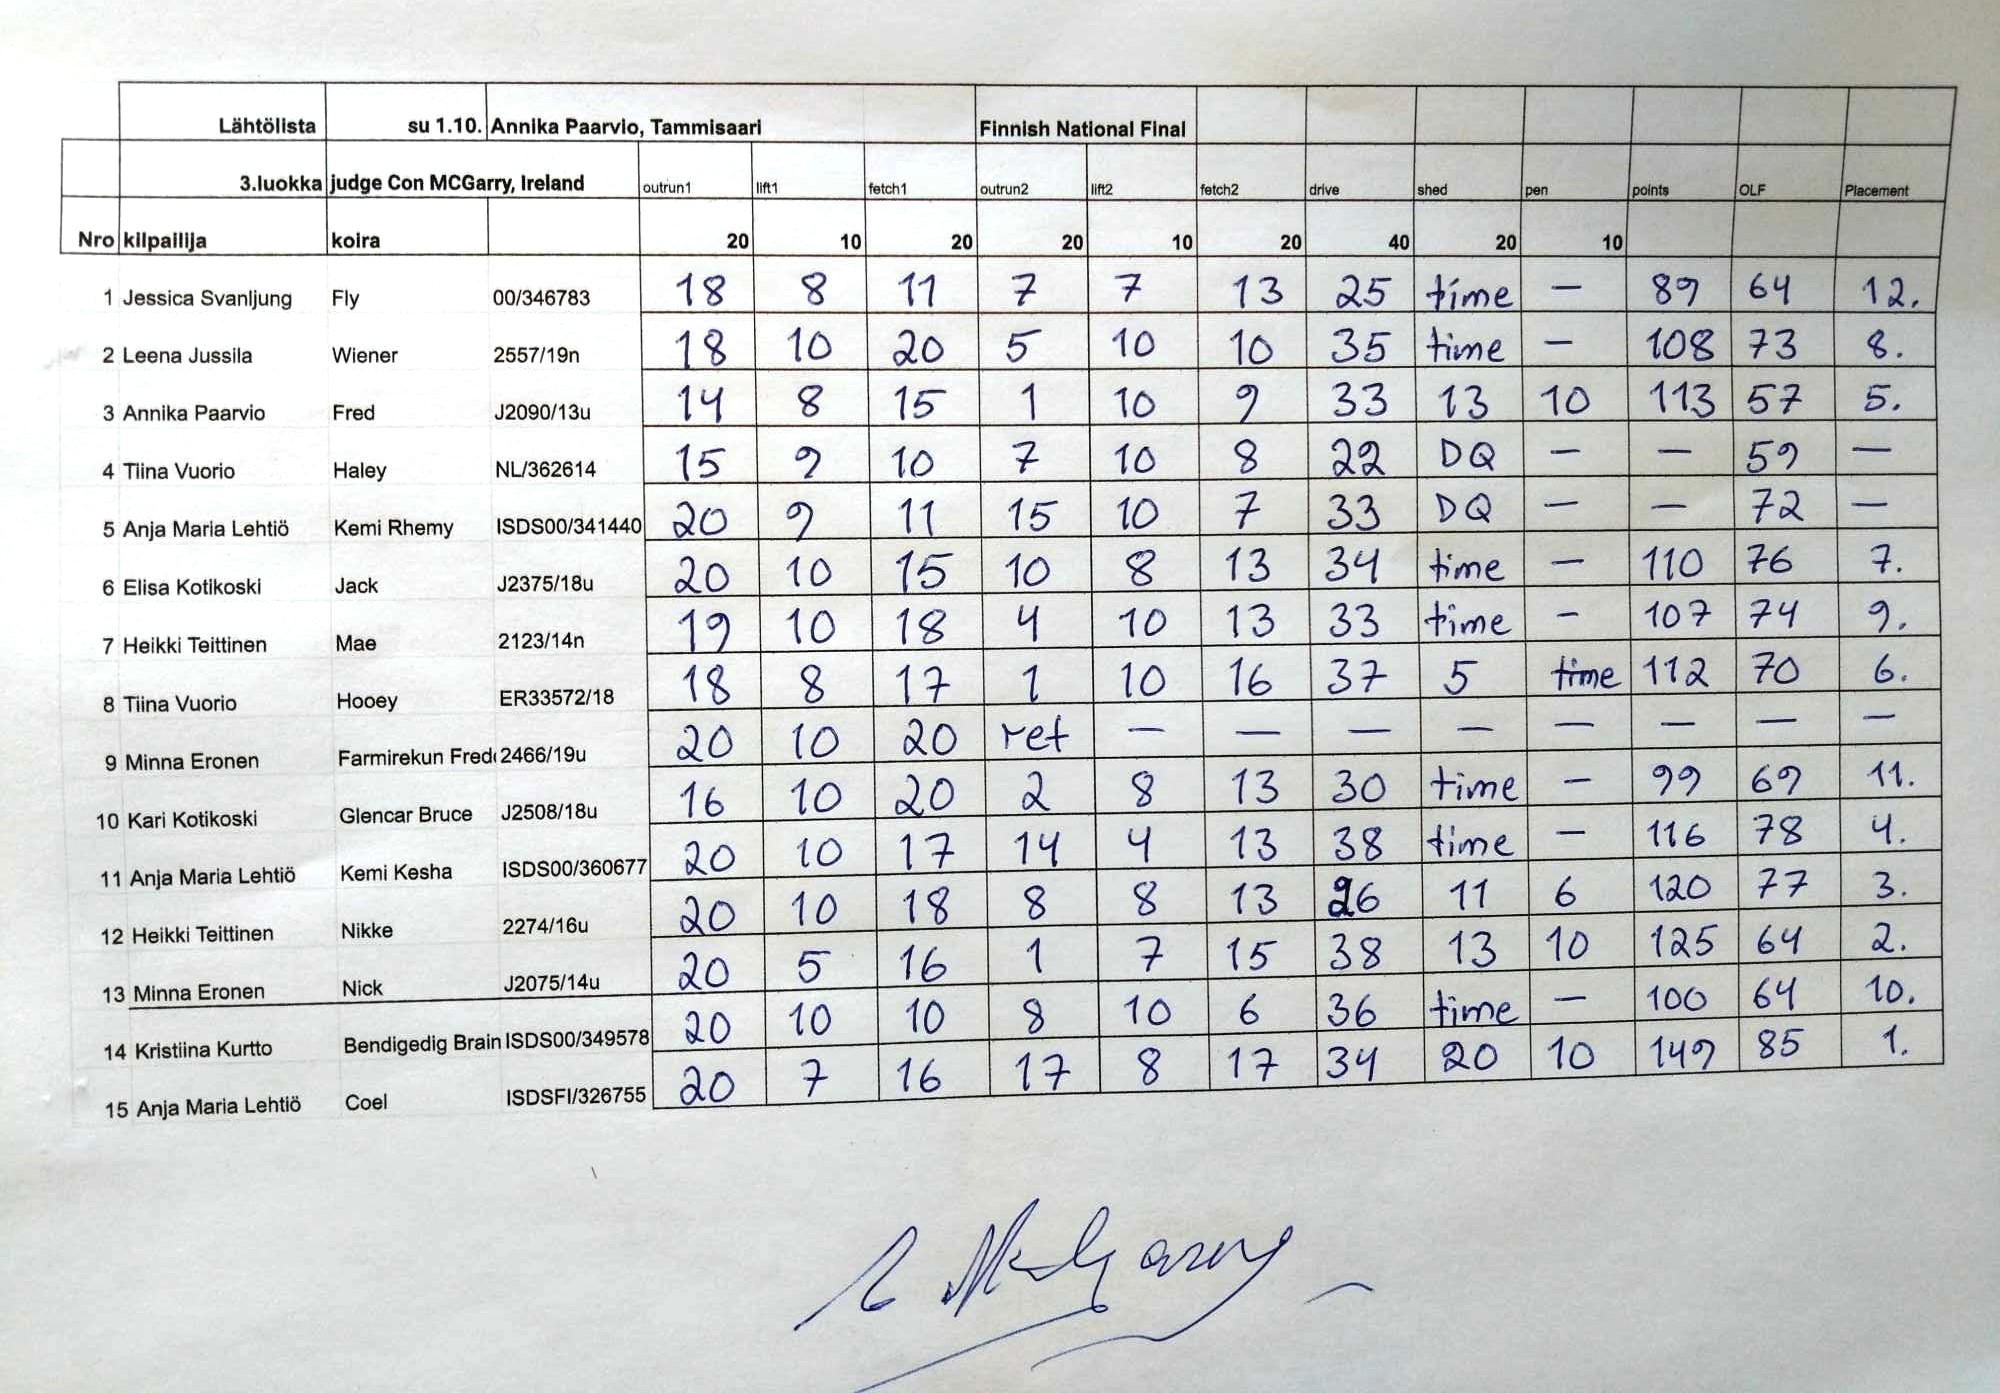 Lähtölista su 1.10. Annika Paarvio, Tammisaari Finnish National Final
3.luokka judge Con MCGarry, Ireland outrun1 lift1 fetch1 outrun2 lift2 fetch2 drive shed pen points OLF Placement
Nro kilpailija koira 20 10 20 20 10 20 40 20 10
1 Jessica Svanljung Fly 00/346783 18 8 11 7 7 13 25 time — 89 64 12.
2 Leena Jussila Wiener 2557/19n 18 10 20 5 10 10 35 time — 108 73 8.
3 Annika Paarvio Fred J2090/13u 14 8 15 1 10 9 33 13 10 113 57 5.
4 Tiina Vuorio Haley NL/362614 15 9 10 7 10 8 22 DQ — — 59 —
5 Anja Maria Lehtiö Kemi Rhemy ISDS00/341440 20 9 11 15 10 7 33 DQ — — 72 —
6 Elisa Kotikoski Jack J2375/18u 20 10 15 10 8 13 34 time — 110 76 7.
7 Heikki Teittinen Mae 2123/14n 19 10 18 4 10 13 33 time — 107 74 9.
8 Tiina Vuorio Hooey ER33572/18 18 8 17 1 10 16 37 5 time 112 70 6.
9 Minna Eronen Farmirekun Fred 2466/19u 20 10 20 ret — — — — — — — —
10 Kari Kotikoski Glencar Bruce J2508/18u 16 10 20 2 8 13 30 time — 99 69 11.
11 Anja Maria Lehtiö Kemi Kesha ISDS00/360677 20 10 17 14 4 13 38 time — 116 78 4.
12 Heikki Teittinen Nikke 2274/16u 20 10 18 8 8 13 26 11 6 120 77 3.
13 Minna Eronen Nick J2075/14u 20 5 16 1 7 15 38 13 10 125 64 2.
14 Kristiina Kurtto Bendigedig Brain ISDS00/349578 20 10 10 8 10 6 36 time — 100 64 10.
15 Anja Maria Lehtiö Coel ISDSFI/326755 20 7 16 17 8 17 34 20 10 149 85 1.